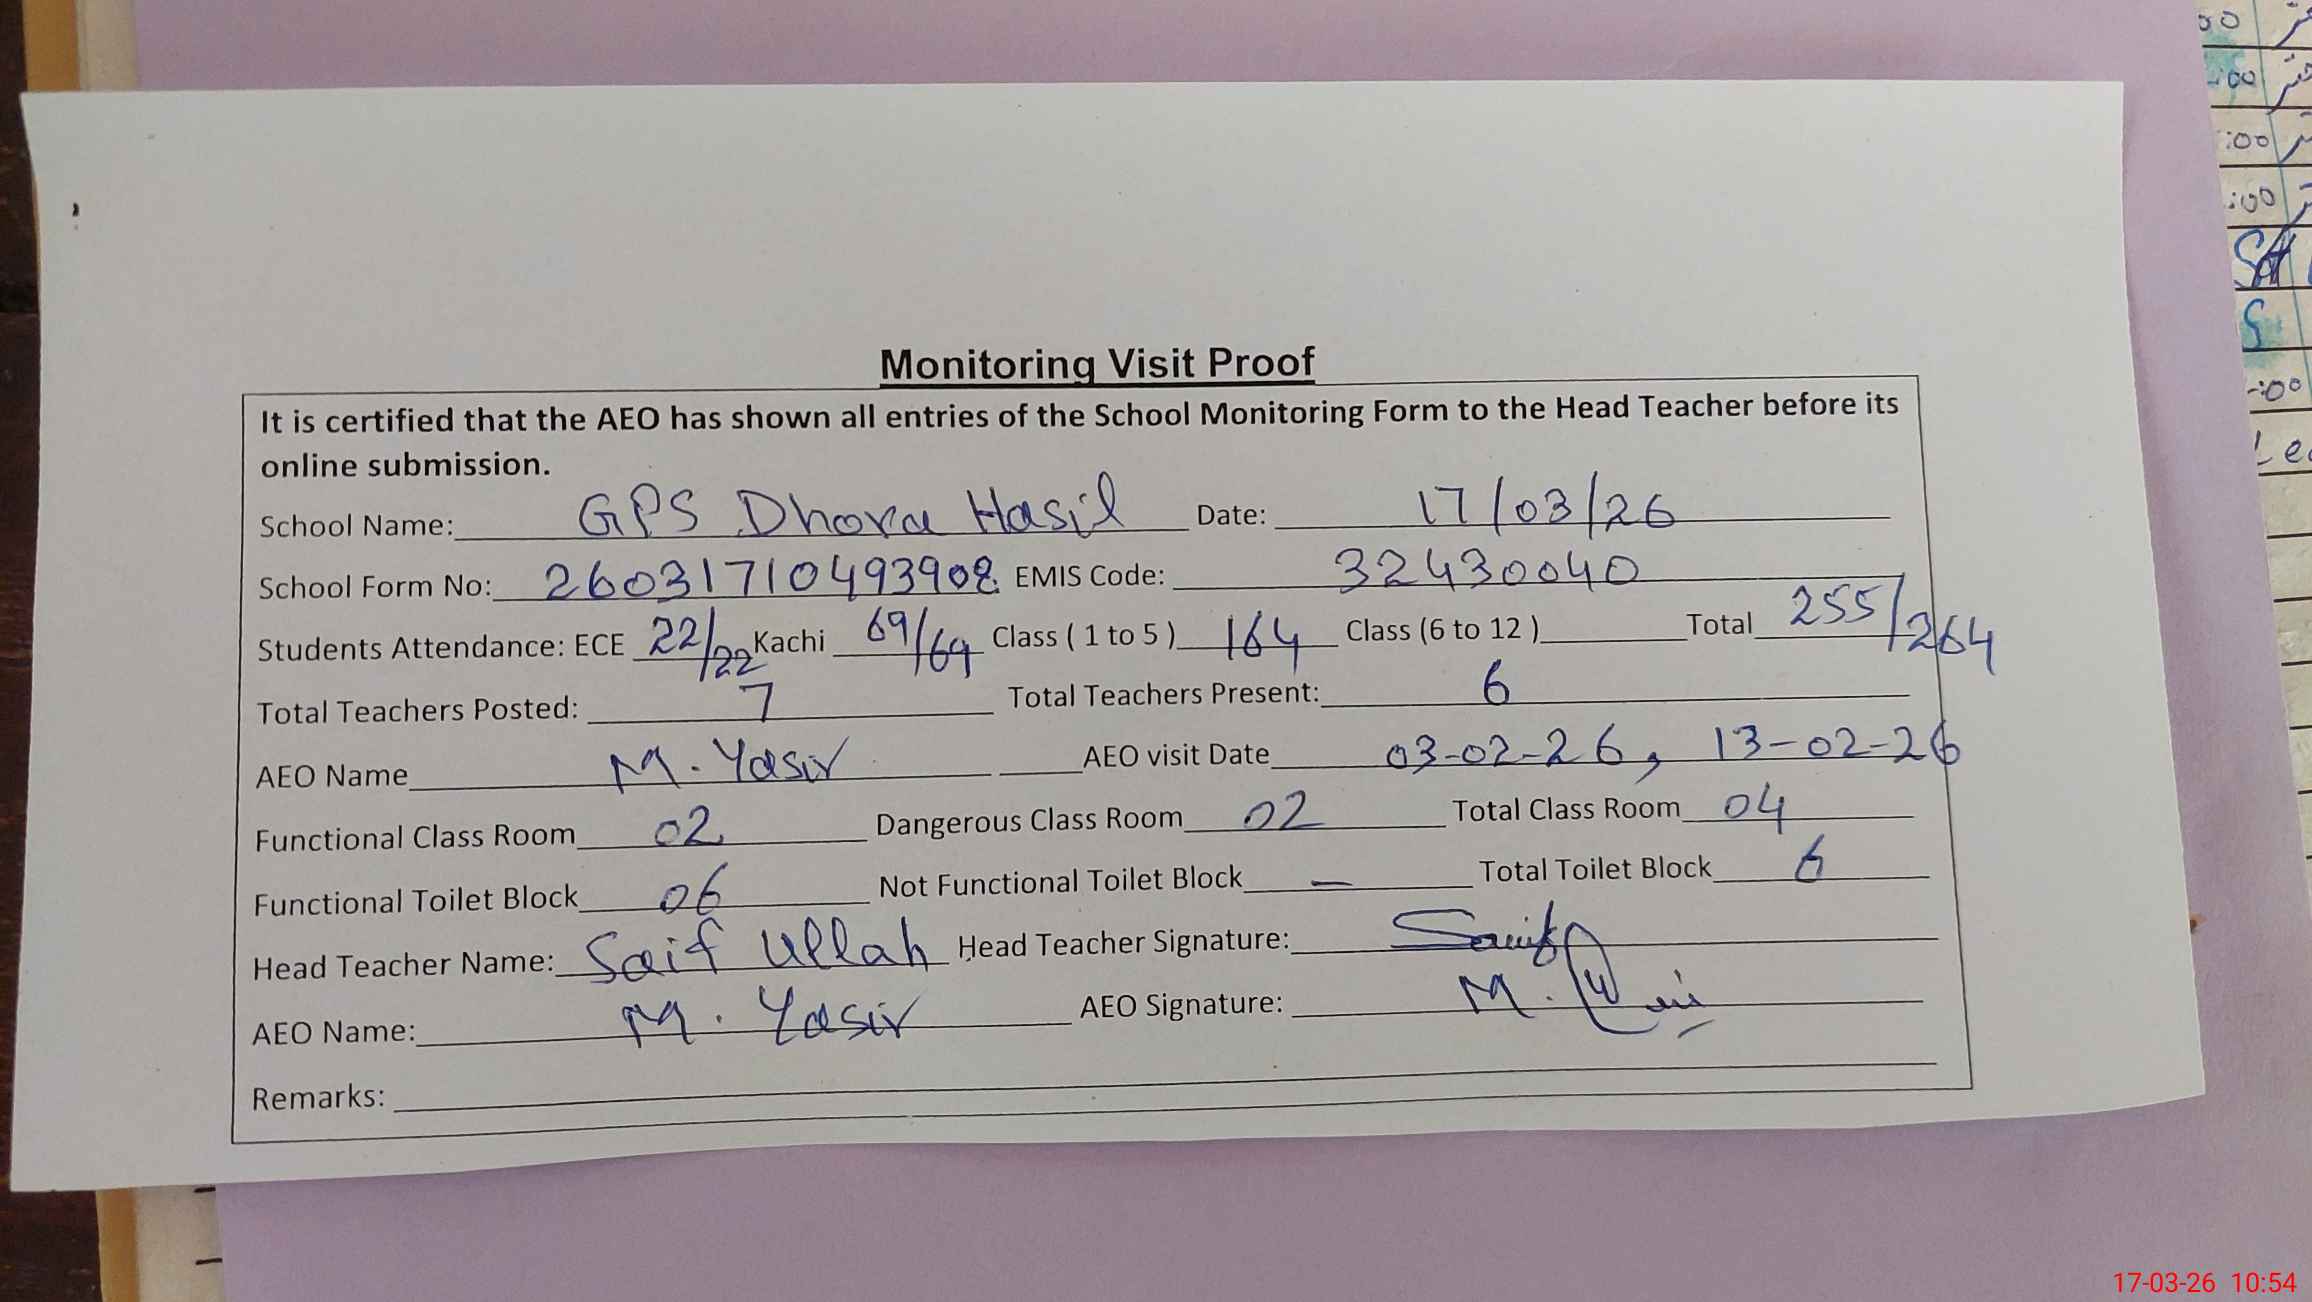 Monitoring Visit Proof
It is certified that the AEO has shown all entries of the School Monitoring Form to the Head Teacher before its
online submission.
School Name: GPS Dhora Hasil Date: 17/03/26
School Form No: 26031710493908 EMIS Code: 32430040
Students Attendance: ECE 22/22 Kachi 69/69 Class ( 1 to 5 ) 164 Class (6 to 12 ) Total 255/264
Total Teachers Posted: 7 Total Teachers Present: 6
AEO Name M. Yasir AEO visit Date 03-02-26, 13-02-26
Functional Class Room 02 Dangerous Class Room 02 Total Class Room 04
Functional Toilet Block 06 Not Functional Toilet Block — Total Toilet Block 6
Head Teacher Name: Saif Ullah Head Teacher Signature: Saif
AEO Name: M. Yasir AEO Signature: M.
Remarks:
17-03-26 10:54